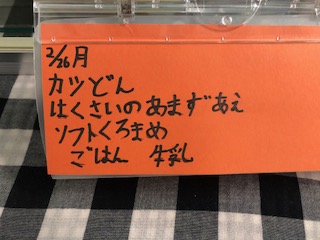 2/26月
カツどん
はくさいのあまずあえ
ソフトくろまめ
ごはん 牛乳